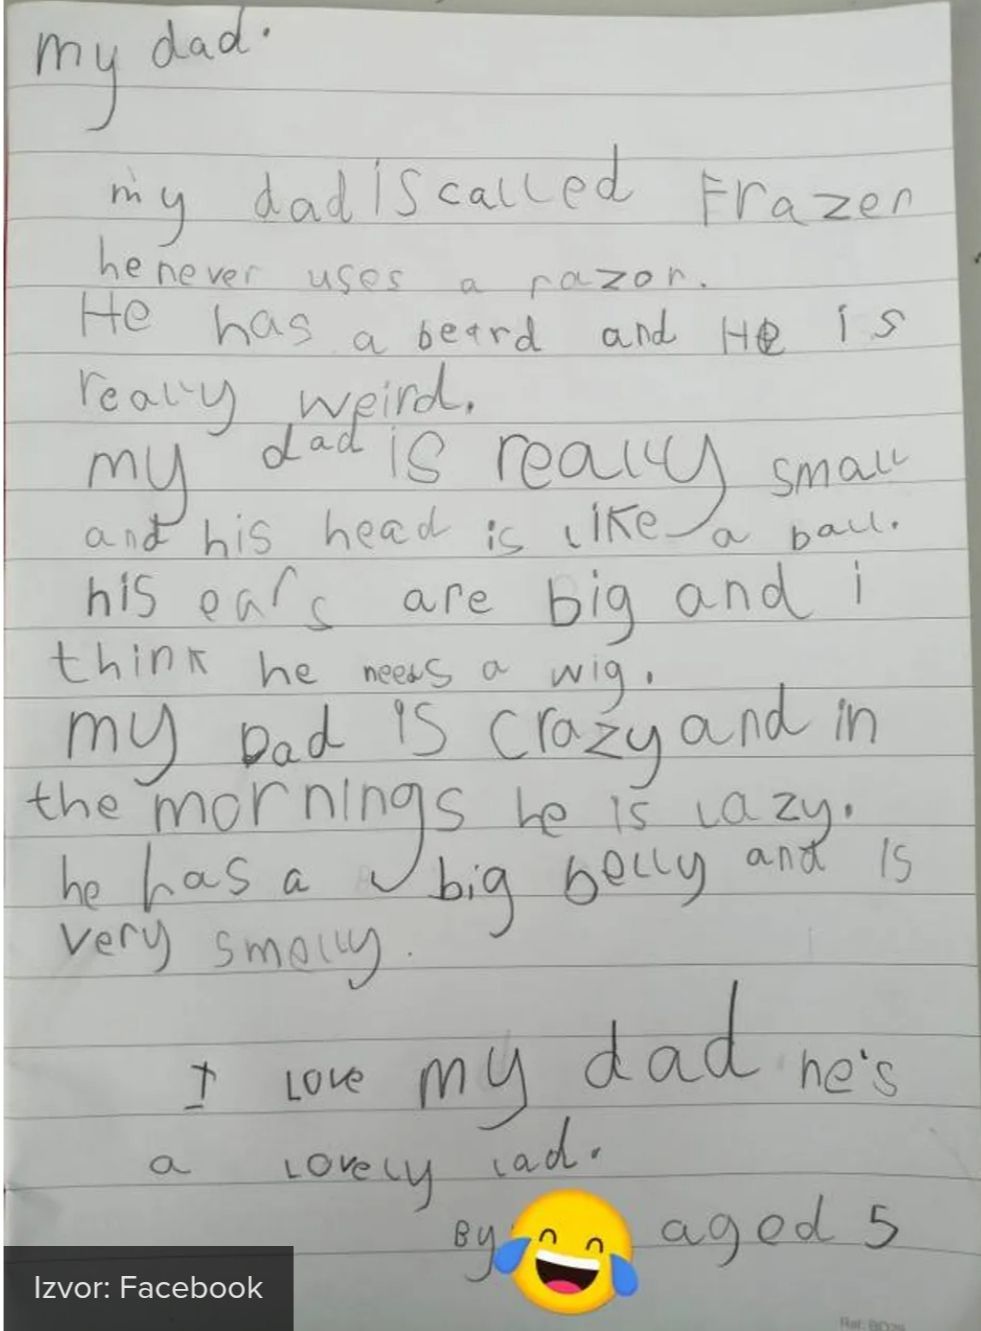 my dad.
my dad is called Frazer
he never uses a razor.
He has a beard and He is
really weird.
my dad is really small
and his head is like a ball.
his ears are big and i
think he needs a wig.
my Dad is crazy and in
the mornings he is lazy.
he has a big belly and is
very smelly.
I love my dad he's
a lovely lad.
By aged 5
Izvor: Facebook